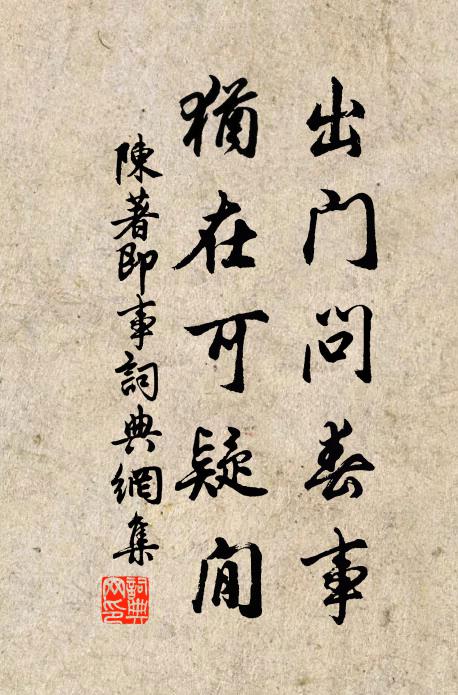 出门问春事
犹在可疑间
陳著即事詞典網集
詞典网印